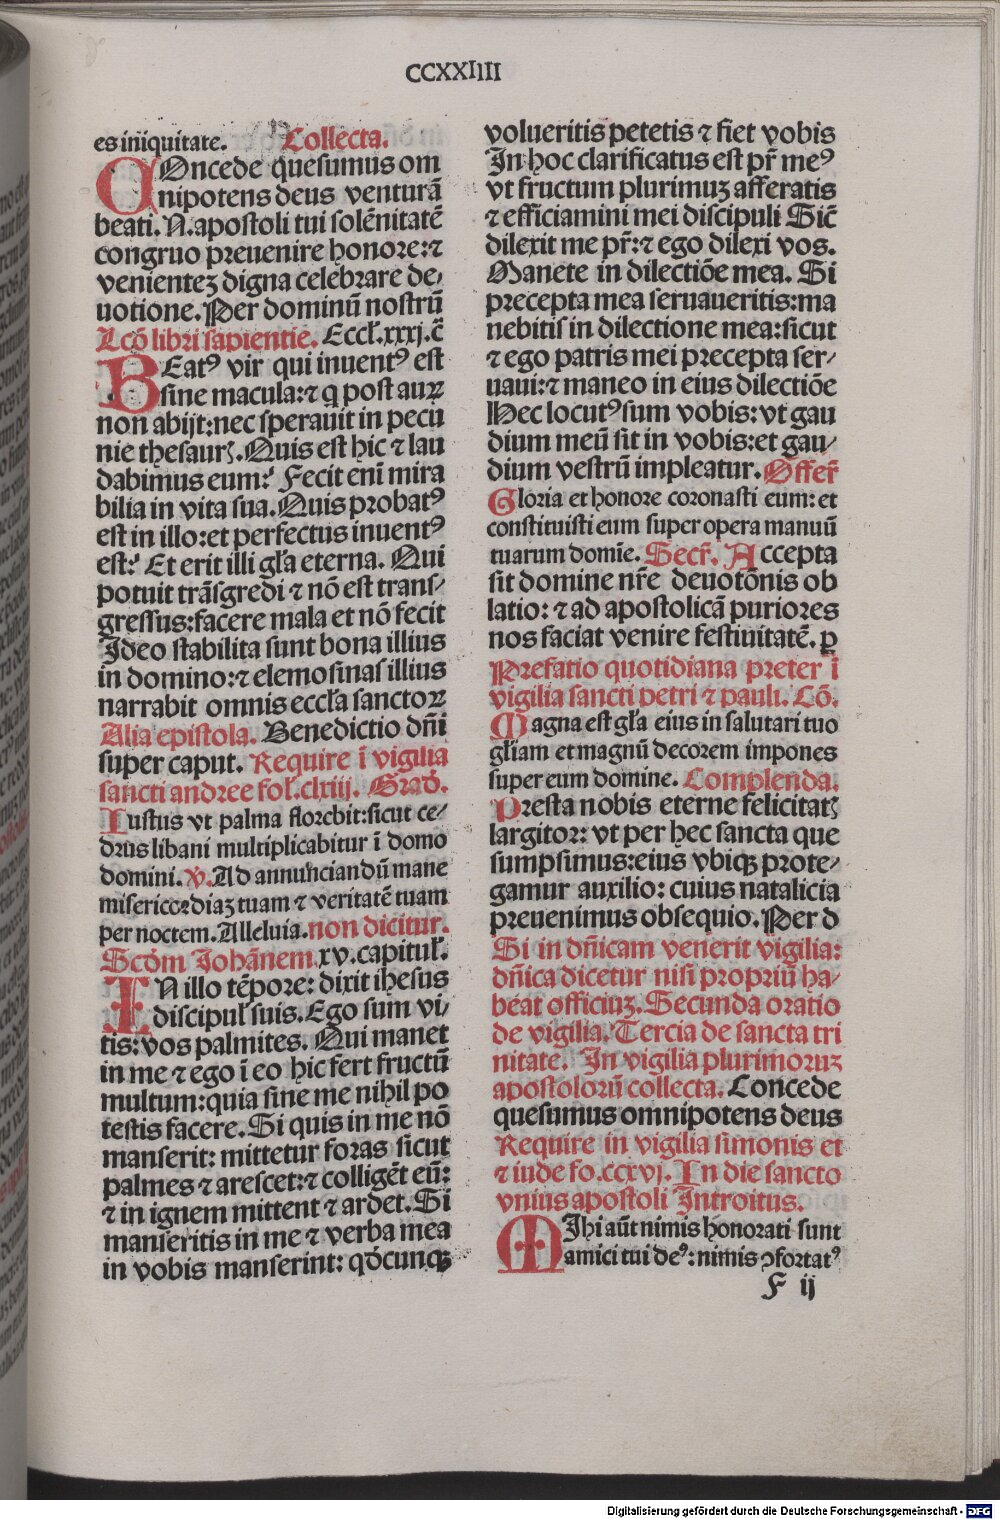 CCXXIIII
es iniquitate. Collecta.
COncede quesumus om
nipotens deus venturā
beati. N. apostoli tui solēnitatē
congruo preuenire honore: ⁊
venientez digna celebrare de⸗
uotione. Per dominū nostrū
Lcō libri sapientie. Eccł. xxxj. c̄
BEatꝰ vir qui inuentꝰ est
sine macula: ⁊ q post auꝝ
non abijt: nec sperauit in pecu
nie thesaurꝭ. Quis est hic ⁊ lau
dabimus eum? Fecit enī mira
bilia in vita sua. Quis probatꝰ
est in illo: et perfectus inuentꝰ
est? Et erit illi gła eterna. Qui
potuit trāsgredi ⁊ nō est trans⸗
gressus: facere mala et nō fecit
Ideo stabilita sunt bona illius
in domino: ⁊ elemosinas illius
narrabit omnis eccła sanctoꝝ
Alia epistola. Benedictio dn̄i
super caput. Require ī vigilia
sancti andree fol. clxiij. Grad.
Iustus vt palma florebit: sicut ce⸗
drus libani multiplicabitur ī domo
domini. ℣. Ad annunciandū mane
misericordiaz tuam ⁊ veritatē tuam
per noctem. Alleluia. non dicitur.
Scd̄m Johānem xv. capituł.
IN illo tēpore: dixit ihesus
discipuł suis. Ego sum vi⸗
tis: vos palmites. Qui manet
in me ⁊ ego ī eo hic fert fructū
multum: quia sine me nihil po
testis facere. Si quis in me nō
manserit: mittetur foras sicut
palmes ⁊ arescet: ⁊ colligēt eū:
⁊ in ignem mittent ⁊ ardet. Si
manseritis in me ⁊ verba mea
in vobis manserint: qd̄cunqꝫ
volueritis petetis ⁊ fiet vobis
In hoc clarificatus est pr̄ meꝰ
vt fructum plurimuz afferatis
⁊ efficiamini mei discipuli Sic̄
dilexit me pr̄: ⁊ ego dilexi vos.
Manete in dilectiōe mea. Si
precepta mea seruaueritis: ma
nebitis in dilectione mea: sicut
⁊ ego patris mei precepta ser⸗
uaui: ⁊ maneo in eius dilectiōe
Hec locutꝰ sum vobis: vt gau
dium meū sit in vobis: et gau⸗
dium vestrū impleatur. Offer̄
Gloria et honore coronasti eum: et
constituisti eum super opera manuū
tuarum domīe. Secr̄. Accepta
sit domine nr̄e deuotōnis ob
latio: ⁊ ad apostolicā puriores
nos faciat venire festiuitatē. ꝑ
Prefatio quotidiana preter ī
vigilia sancti petri ⁊ pauli. Cō.
Magna est gła eius in salutari tuo
głiam et magnū decorem impones
super eum domine. Complenda.
Presta nobis eterne felicitatꝭ
largitor: vt per hec sancta que
sumpsimus: eius vbiqꝫ prote⸗
gamur auxilio: cuius natalicia
preuenimus obsequio. Per d
Si in dn̄icam venerit vigilia:
dn̄ica dicetur nisi propriū ha⸗
beat officiuz. Secunda oratio
de vigilia. Tercia de sancta tri
nitate. In vigilia plurimoruz
apostolorū collecta. Concede
quesumus omnipotens deus
Require in vigilia simonis et
⁊ iude fo. ccxvj. In die sancto
vnius apostoli Introitus.
MIhi aūt nimis hōnorati sunt
amici tui deꝰ: nimis ꝯfortatꝰ
F ij
Digitalisierung gefördert durch die Deutsche Forschungsgemeinschaft - DFG